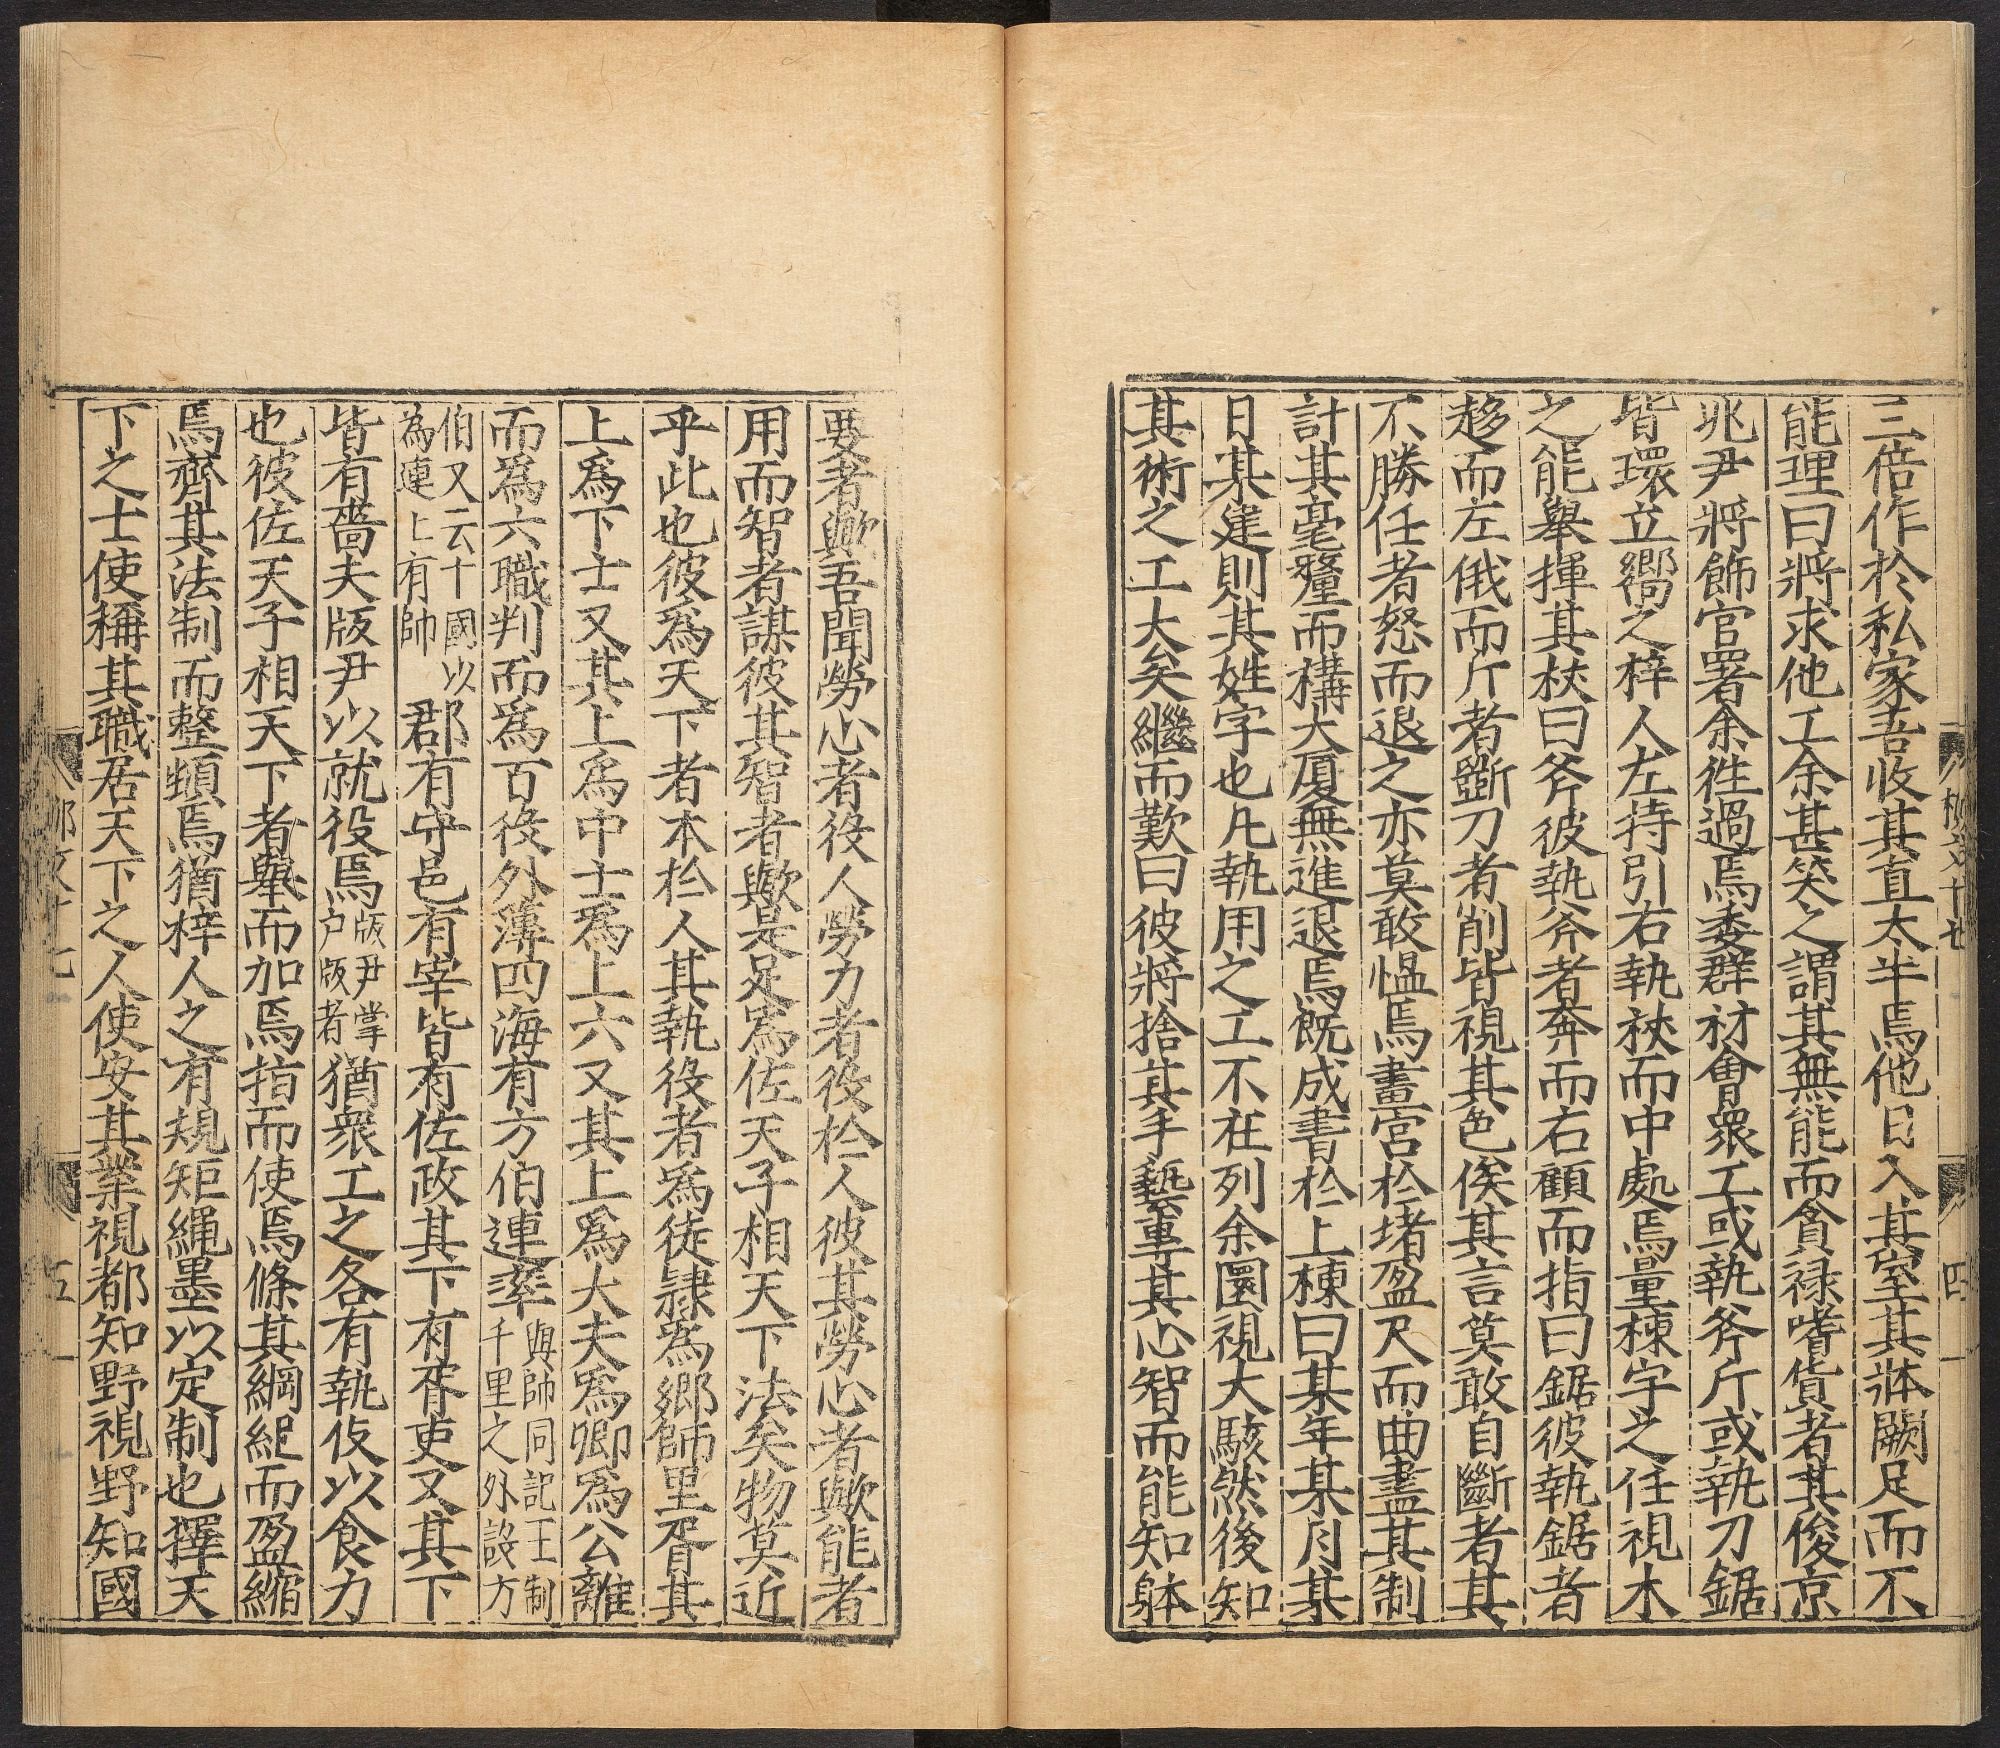 三倍作於私家吾收其直太半焉他日入其室其牀闕足而不
能理曰將求他工余甚笑之謂其無能而貪禄嗜貨者其後京
兆尹將飾官署余徃過焉委群材會衆工或執斧斤或執刀鋸
皆環立嚮之梓人左持引右執杖而中處焉量棟宇之任視木
之能舉揮其杖曰斧彼執斧者奔而右顧而指曰鋸彼執鋸者
趍而左俄而斤者斲刀者削皆視其色俟其言莫敢自斷者其
不勝任者怒而退之亦莫敢愠焉畫宫於堵盈尺而曲盡其制
計其毫釐而構大厦無進退焉既成書於上棟曰某年某月某
日某建則其姓字也凡執用之工不在列余圜視大駭然後知
其術之工大矣繼而歎曰彼將捨其手藝專其心智而能知躰
柳文十七 四
要者歟吾聞勞心者役人勞力者役於人彼其勞心者歟能者
用而智者謀彼其智者歟是足為佐天子相天下法矣物莫近
乎此也彼為天下者本於人其執役者為徒隷為鄉師里胥其
上爲下士又其上爲中士爲上六又其上爲大夫爲卿爲公離
而爲六職判而爲百役外薄四海有方伯連率與帥同記王制
千里之外設方
伯又云十國以
為連上有帥郡有守邑有宰皆有佐政其下有胥吏又其下
皆有嗇夫版尹以就役焉版尹掌
户版者猶衆工之各有執伎以食力
也彼佐天子相天下者舉而加焉指而使焉條其綱紀而盈縮
焉齊其法制而整頓焉猶梓人之有規矩繩墨以定制也擇天
下之士使稱其職居天下之人使安其業視都知野視野知國
柳文十七 五